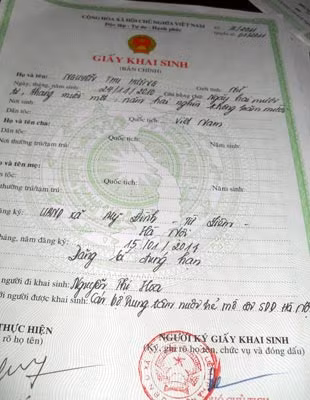 CỘNG HÒA XÃ HỘI CHỦ NGHĨA VIỆT NAM
Độc lập - Tự do - Hạnh phúc
Số:
Quyển số:
GIẤY KHAI SINH
(BẢN CHÍNH)
Họ và tên: NGUYỄN THỊ Giới tính: Nữ
Ngày, tháng, năm sinh: Ghi bằng chữ: Ngày hai mươi
tư, tháng mười một, năm hai nghìn không trăm mười
Dân tộc: Quốc tịch: Việt Nam
Họ và tên cha:
Dân tộc: Quốc tịch: Năm sinh:
Nơi thường trú/tạm trú:
Họ và tên mẹ:
Dân tộc: Quốc tịch: Năm sinh:
thường trú/tạm trú:
đăng ký: UBND xã Mỹ Đình - Từ Liêm -
Hà Nội
tháng, năm đăng ký: 15/01/2011
Đăng kí đúng hạn
người đi khai sinh: Nguyễn Thị Hoa
người được khai sinh: Cán bộ trung tâm nuôi trẻ mồ côi Hà Nội
THỰC HIỆN
rõ họ tên)
NGƯỜI KÝ GIẤY KHAI SINH
(Ký, ghi rõ họ tên, chức vụ và đóng dấu)